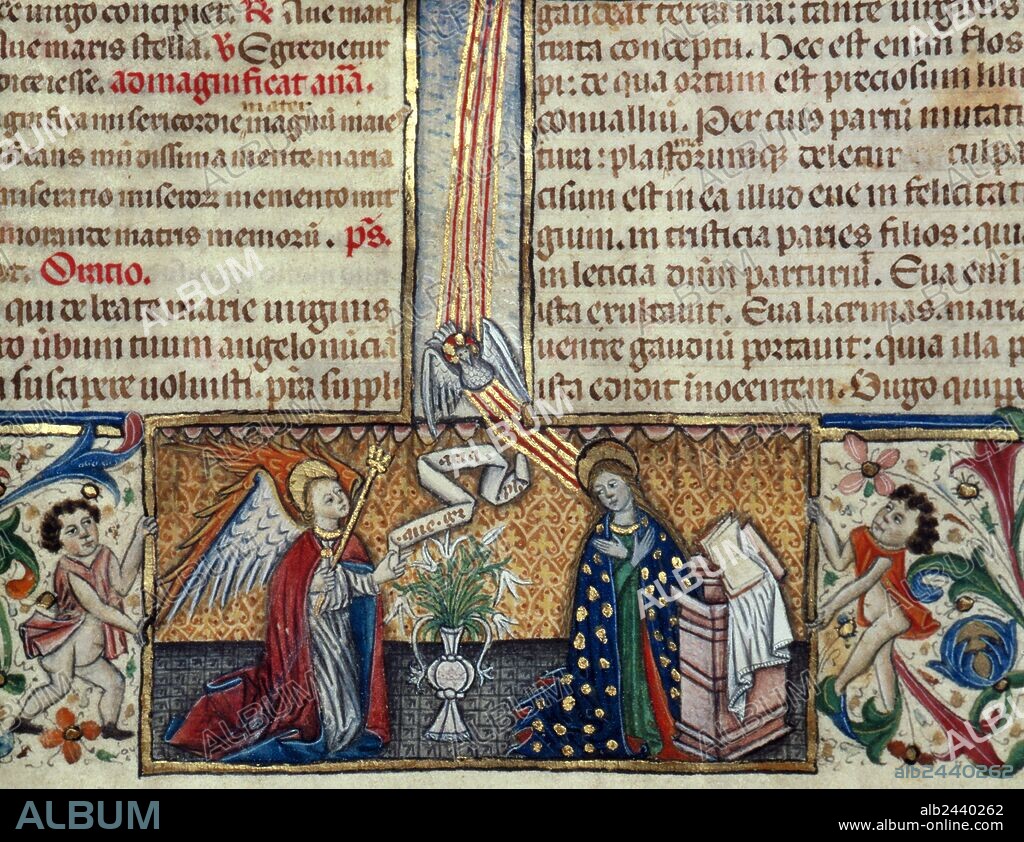 ce uirgo concipiet. ℟ Aue mari
Aue maris stella. ℣ Egredietur
ad magnificat anā.
mater
misericordie, magnū maie
mū dissima mente maria
miseratio miseroꝝ memento mr
matris memorū. ps.
Oratio.
qui de beate marie uirginis
ūbum tuum angelo nūcia
suscipere uoluisti. pr̄a suppli
gaudeat terra nr̄a: tante uirginis
trata conceptu. Hec est enim flos
pi: de qua ortum est preciosum lilii
conuallīu. Per cuis partū mutat
tura: plastorumqꝫ deletur culpa
cisum est in ea illud eue in felicitat
gium. in tristicia paries filios: qui
in leticia dūm parturiūt. Eua enī l
ista exultauit. Eua lacrimas. maria
uentre gaudiū portauit: quia illa p
ista edidit īnocentem. Virgo quipp
ALBUM
alb2440262
ALBUM
alb2440262
www.album-online.com